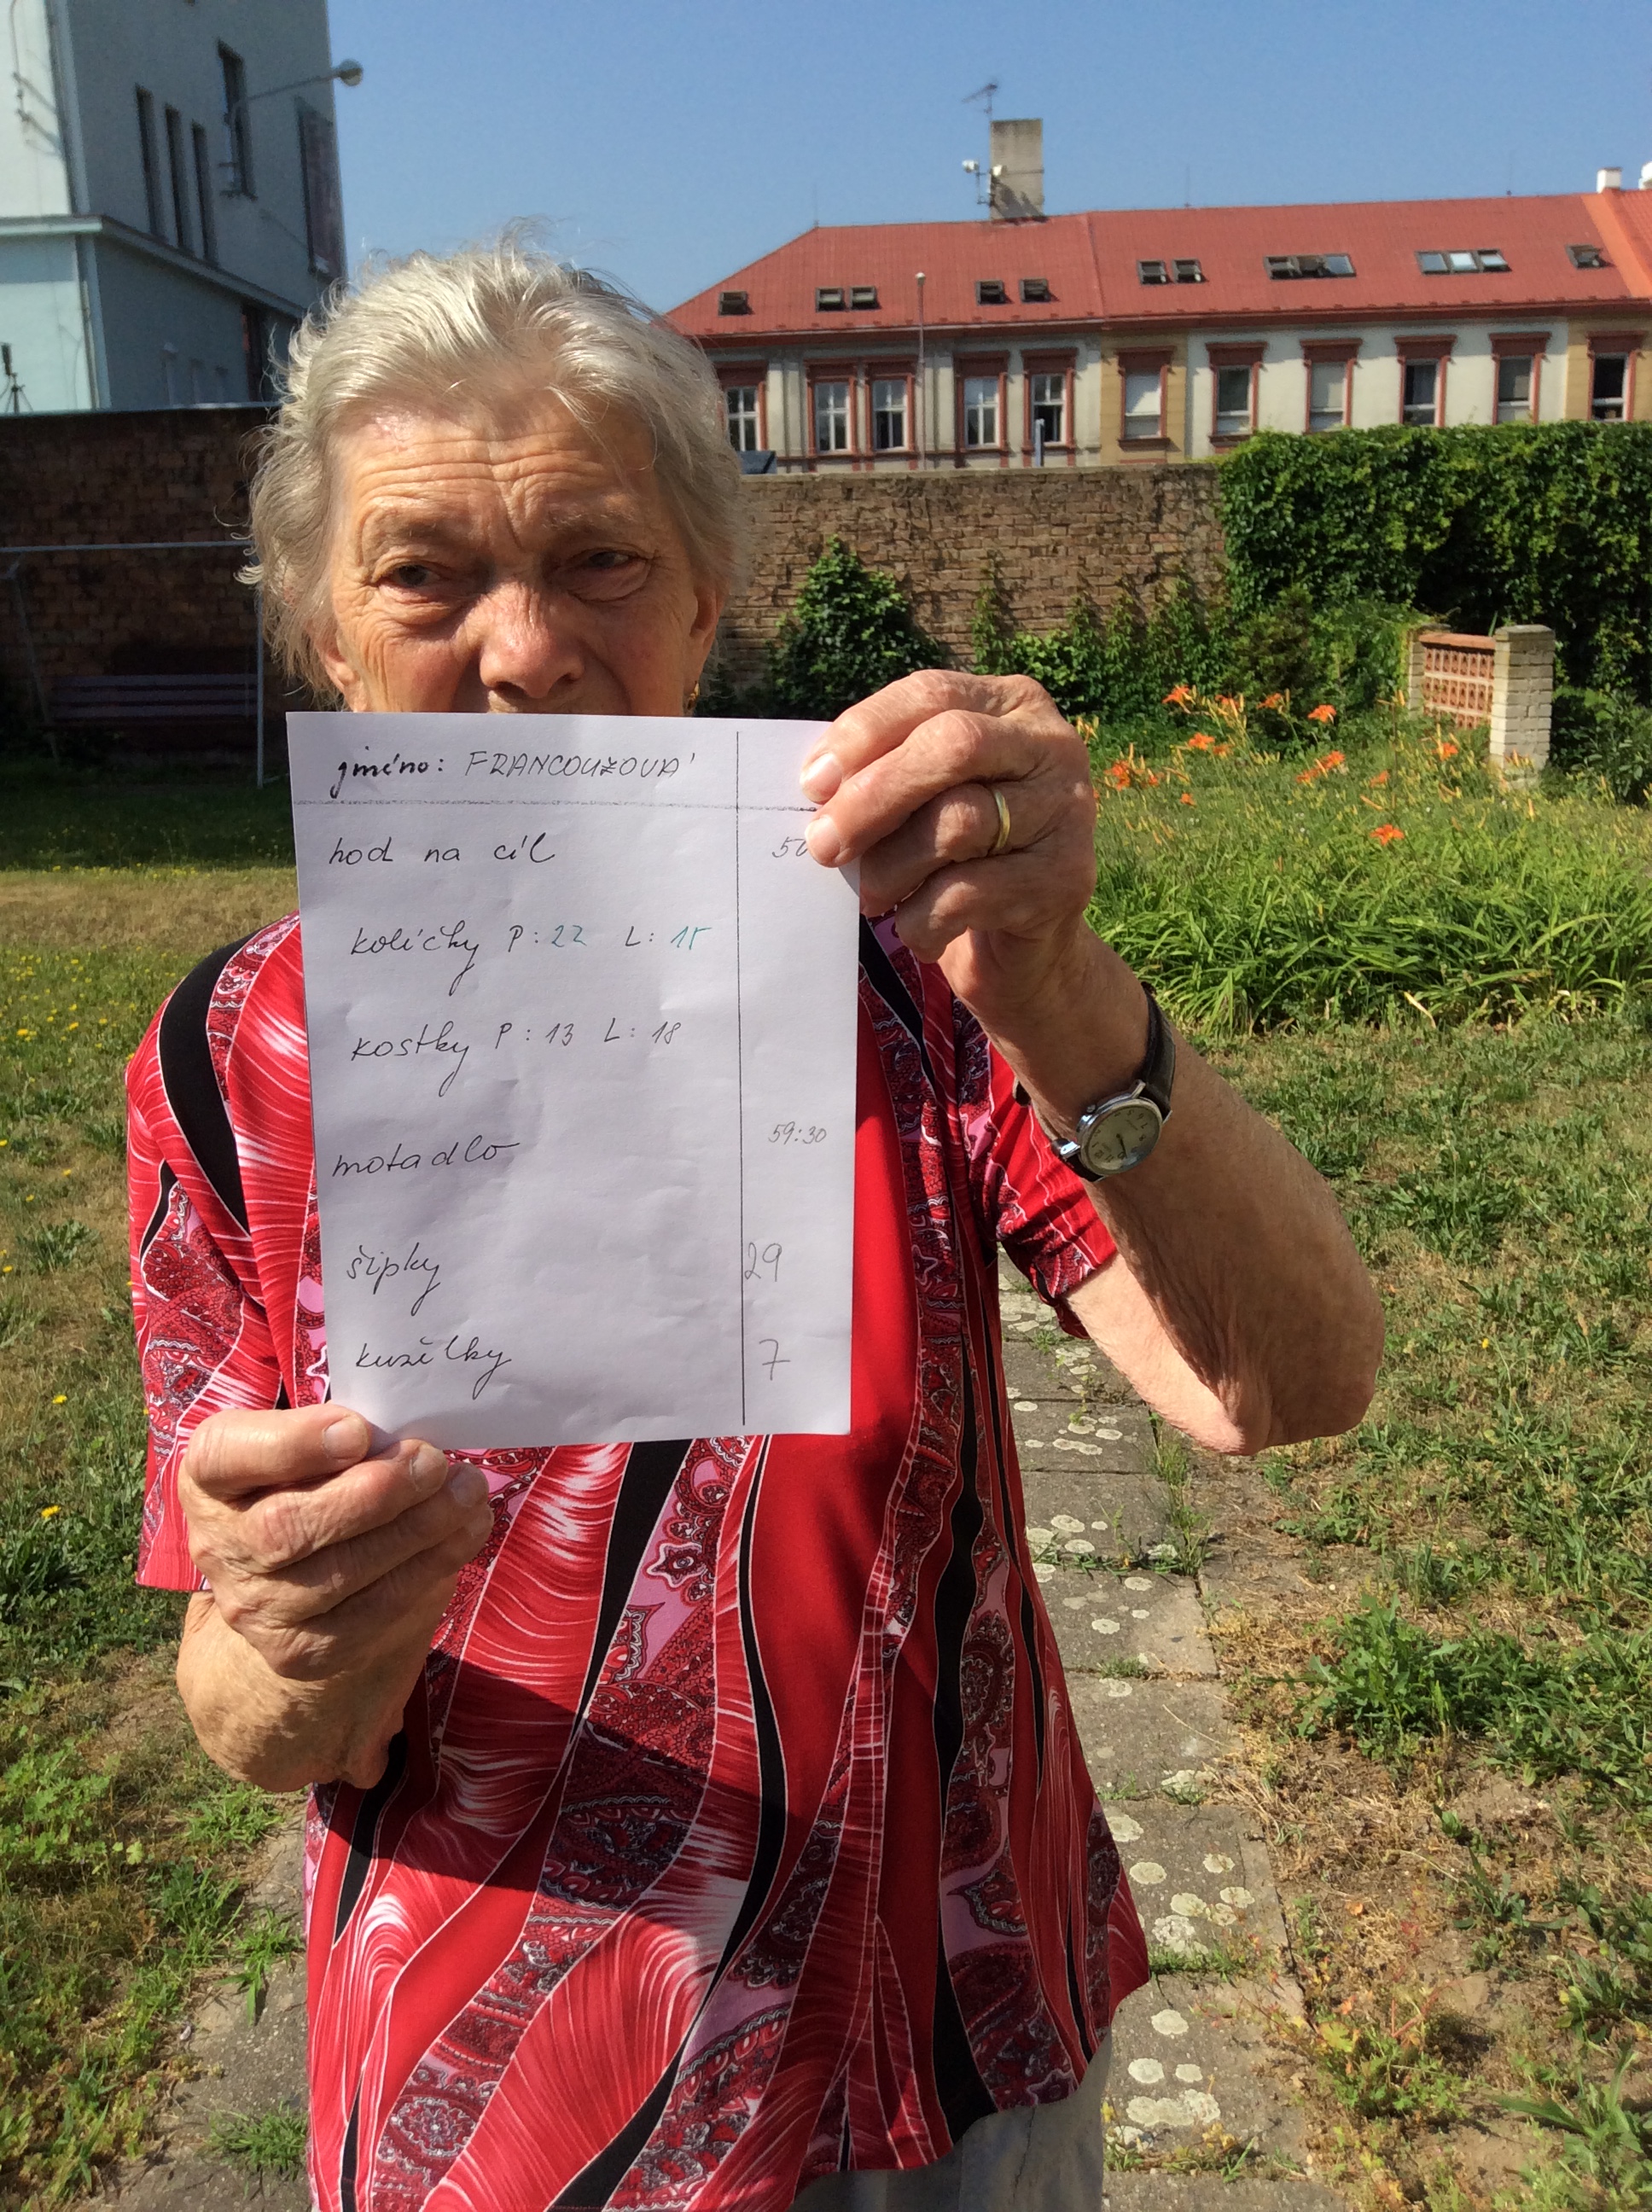 jméno: FRANCOUZOVÁ
hod na cíl
kolíčky P: 22 L: 15
kostky P: 13 L: 18
motadlo 59:30
šipky 29
kuželky 7